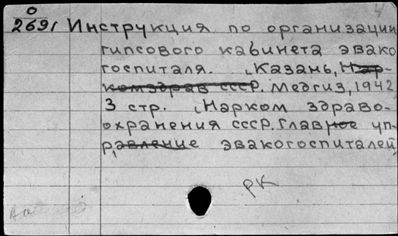 0
2691 Инструкция по организации
гипсового кабинета эвако
госпиталя. Казань, Нар-
комздрав СССР. Медгиз, 1942
3 стр. Нарком здраво-
охранения СССР. Главное уп-
равление эвакогоспиталей,
РК